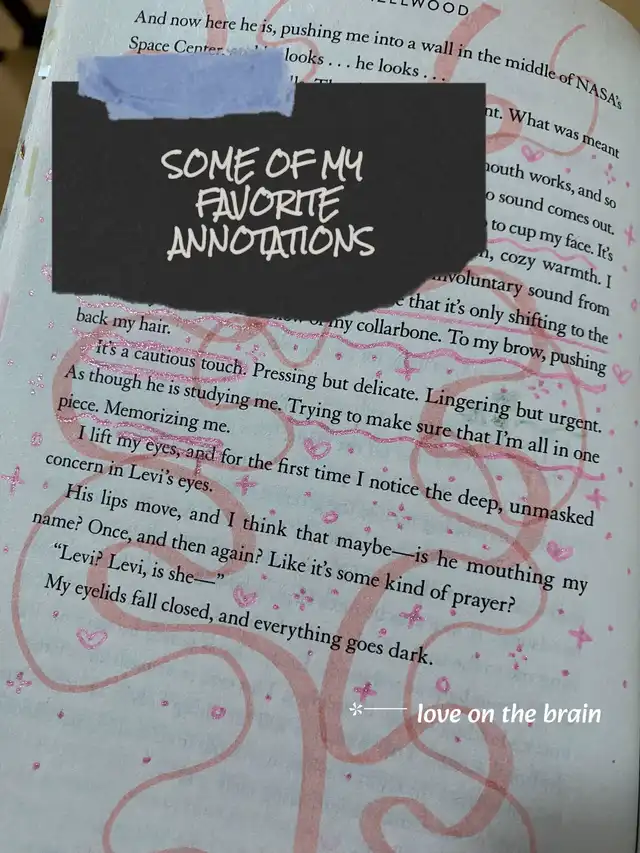 And now here he is, pushing me into a wall in the middle of NASA's
Space Center, looks . . . he looks . . .
nt. What was meant
mouth works, and so
o sound comes out.
to cup my face. It's
cozy warmth. I
involuntary sound from
that it's only shifting to the
my collarbone. To my brow, pushing
back my hair.
It's a cautious touch. Pressing but delicate. Lingering but urgent.
As though he is studying me. Trying to make sure that I'm all in one
piece. Memorizing me.
I lift my eyes, and for the first time I notice the deep, unmasked
concern in Levi's eyes.
His lips move, and I think that maybe—is he mouthing my
name? Once, and then again? Like it's some kind of prayer?
"Levi? Levi, is she—"
My eyelids fall closed, and everything goes dark.
SOME OF MY
FAVORITE
ANNOTATIONS
love on the brain